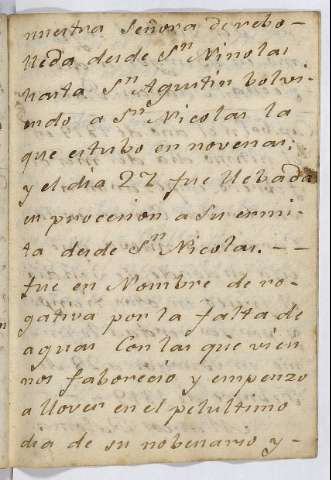 nuestra Señora de rebo-
lleda desde Sn Ninolas
hasta Sn Agustin bolvi-
endo a Sn Nicolas la
que estubo en novenas;
y el dia 27 fue llebada
en procecion a su ermi-
ta desde Sn Nicolas. — —
fue en Nombre de ro-
gativa por la falta de
aguas Con las que vien
nos faborecio y empenzo
a llover en el pelultimo
dia de su nobenario y -